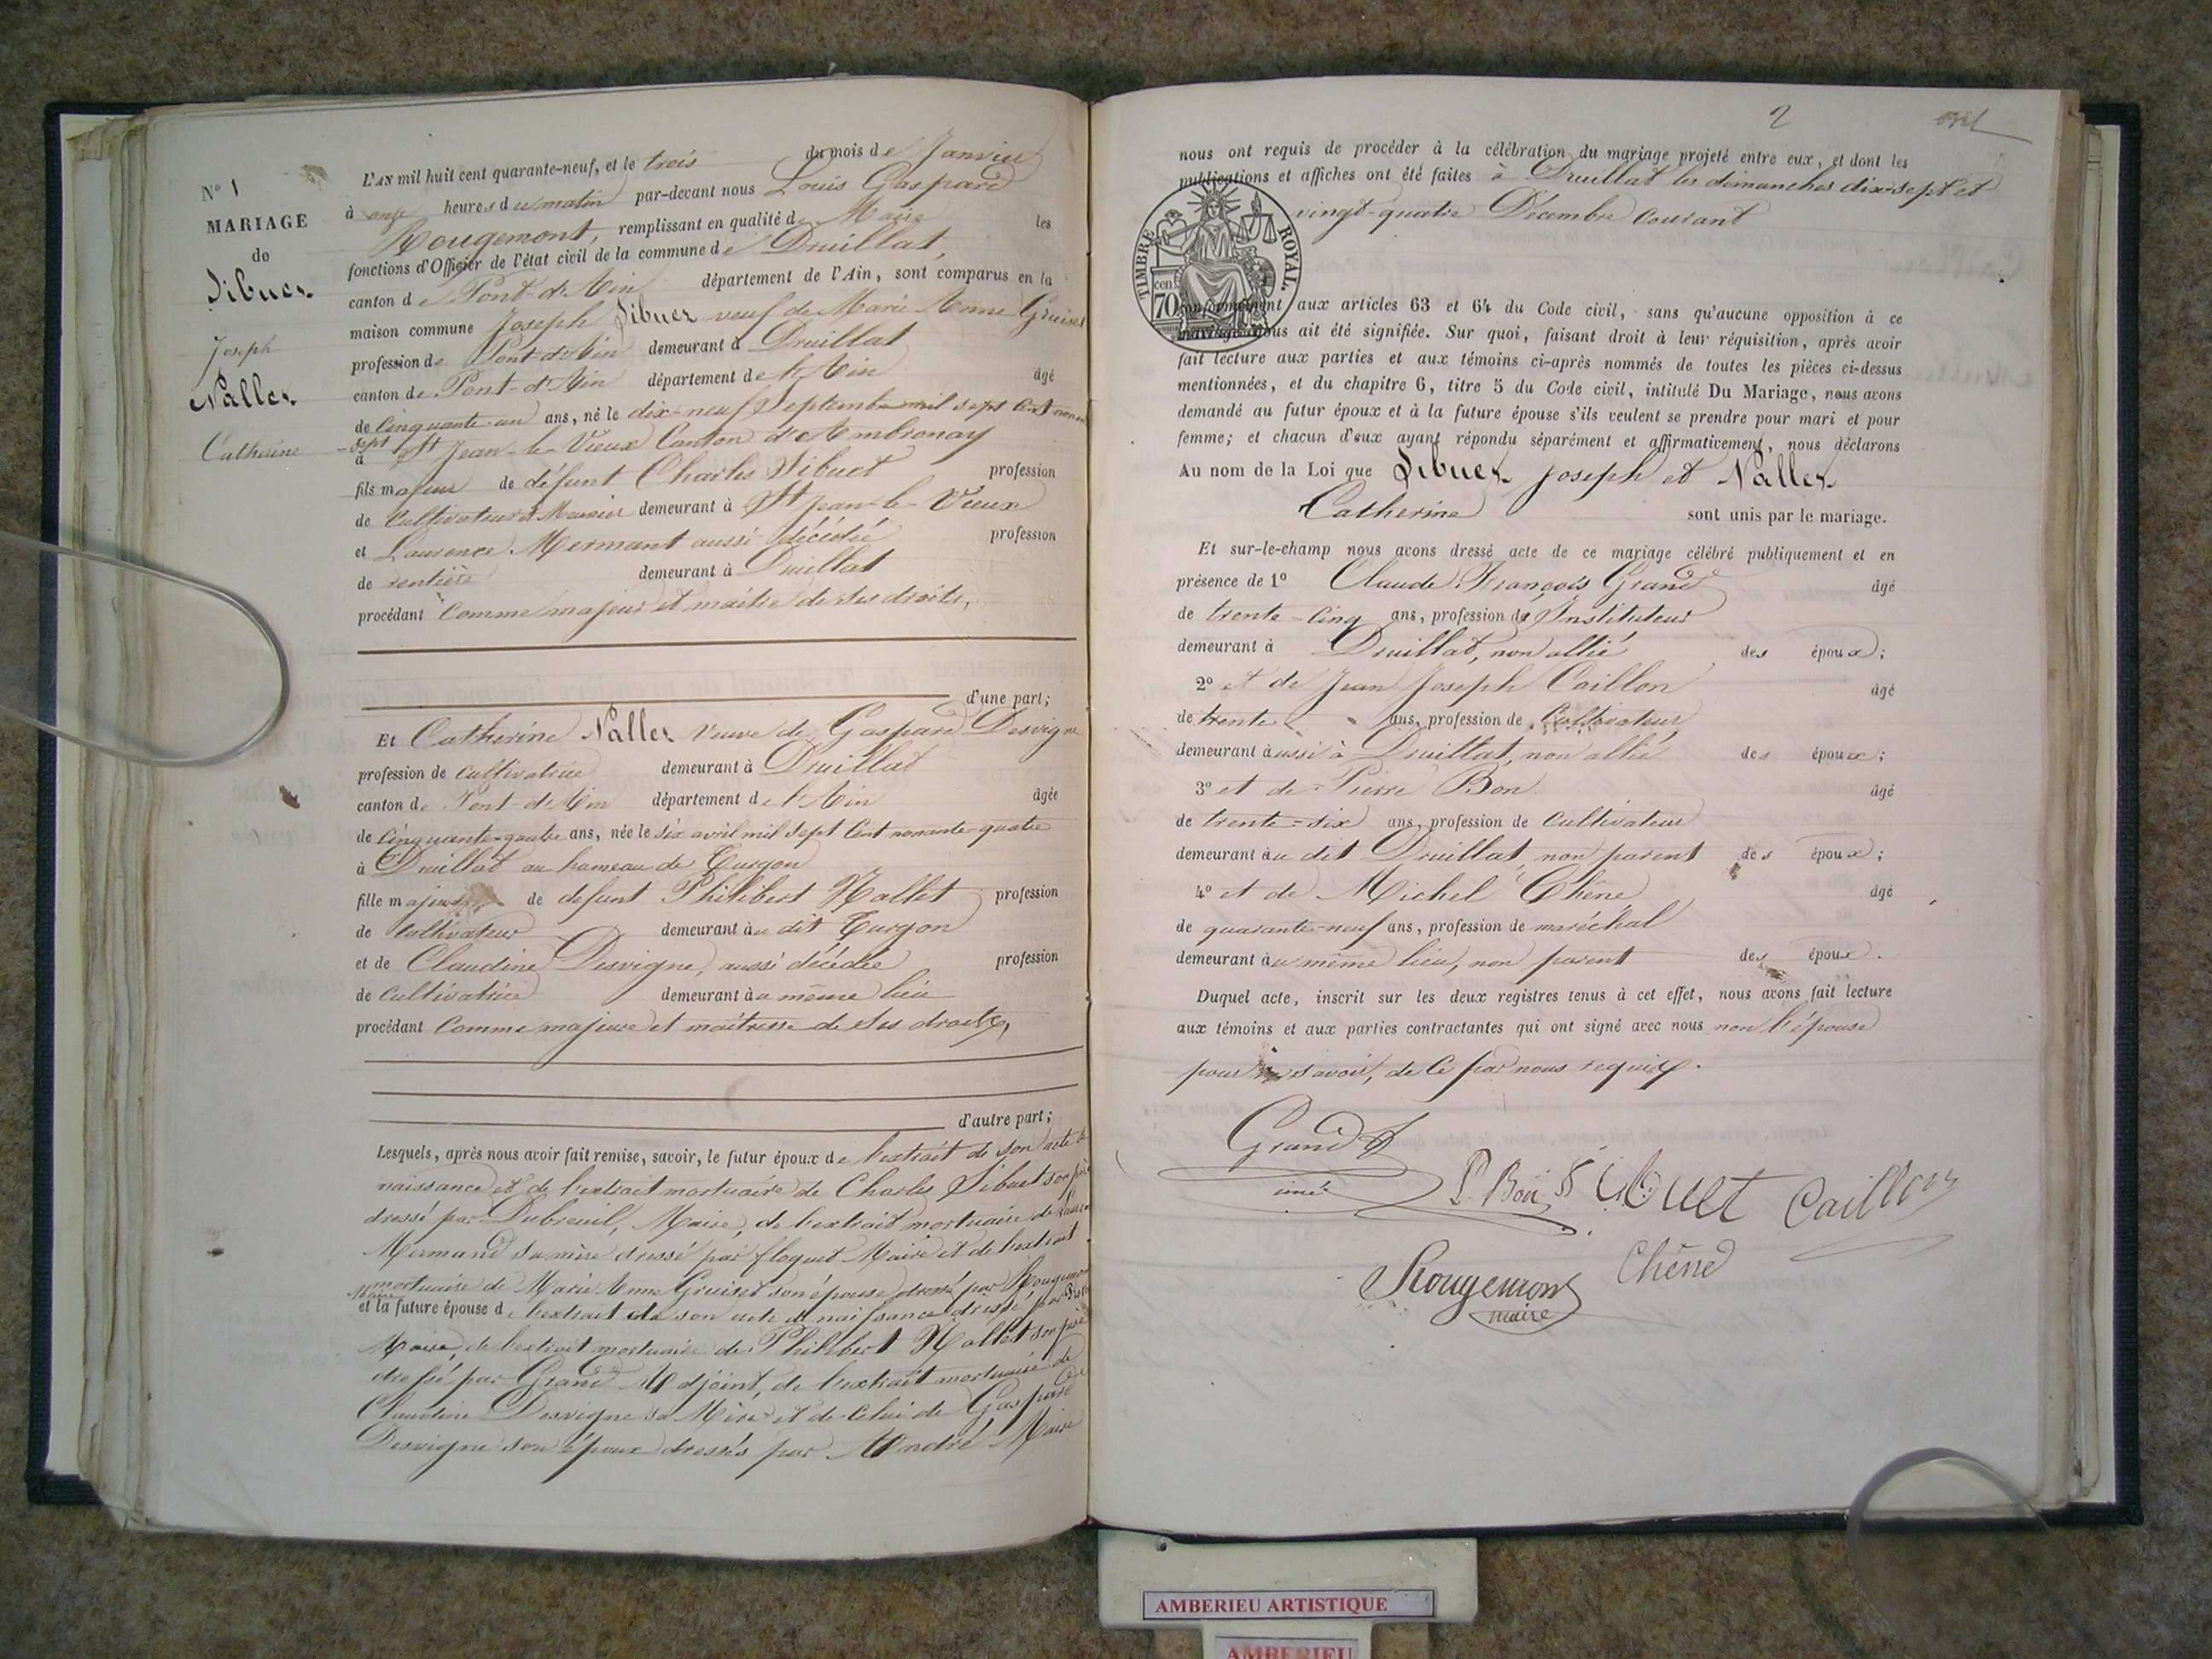 N° 1
MARIAGE
de
Sibuet
Joseph
Nallet
Catherine
L'AN mil huit cent quarante-neuf, et le trois du mois de Janvier
à onze heures du matin par-devant nous Louis Gaspard
Rougemont, remplissant en qualité de Maire les
fonctions d'Officier de l'état civil de la commune de Druillat,
canton de Pont-d'Ain département de l'Ain, sont comparus en la
maison commune Joseph Sibuet veuf de Marie Anne Gruiset
profession de Pont-d'Ain demeurant à Druillat
canton de Pont-d'Ain département de l'Ain âgé
de Cinquante-un ans, né le dix-neuf Septembre mil sept Cent nonante
-sept
à St Jean-le-Vieux Canton d'Ambronay
fils majeur de défunt Charles Sibuet profession
de Cultivateur et Meunier demeurant à St Jean-le-Vieux
et Laurence Mermant aussi décédée profession
de rentière demeurant à Druillat
procédant Comme majeur et maître de ses droits,
d'une part;
Et Catherine Nallet Veuve de Gaspard Desvigne
profession de Cultivatrice demeurant à Druillat
canton de Pont-d'Ain département de l'Ain âgée
de Cinquante-quatre ans, née le six avril mil sept Cent nonante-quatre
à Druillat au hameau de Turgon
fille majeure de défunt Philibert Nallet profession
de Cultivateur demeurant au dit Turgon
et de Claudine Desvigne, aussi décédée profession
de Cultivatrice demeurant au même lieu
procédant Comme majeure et maîtresse de ses droits,
d'autre part;
Lesquels, après nous avoir fait remise, savoir, le futur époux de l'extrait de son acte de
naissance et de l'extrait mortuaire de Charles Sibuet son père
dressé par Dubreuil, Maire, de l'extrait mortuaire de
Mermand sa mère dressé par floquet Maire et de l'extrait
mortuaire de Marie Anne Gruiset son épouse dressé par Rougemont
Maire
et la future épouse de l'extrait de son acte de naissance dressé par
Maire, de l'extrait mortuaire de Philibert Nallet son père
dressé par Grand Adjoint, de l'extrait mortuaire de
Claudine Desvigne sa Mère et de Celui de Gaspard
Desvigne son époux dressés par André Maire
2
nous ont requis de procéder à la célébration du mariage projeté entre eux, et dont les
publications et affiches ont été faites à Druillat les dimanches dix-sept et
vingt-quatre Décembre Courant
TIMBRE ROYAL.
70 cen
conformément aux articles 63 et 64 du Code civil, sans qu'aucune opposition à ce
mariage nous ait été signifiée. Sur quoi, faisant droit à leur réquisition, après avoir
fait lecture aux parties et aux témoins ci-après nommés de toutes les pièces ci-dessus
mentionnées, et du chapitre 6, titre 5 du Code civil, intitulé Du Mariage, nous avons
demandé au futur époux et à la future épouse s'ils veulent se prendre pour mari et pour
femme; et chacun d'eux ayant répondu séparément et affirmativement, nous déclarons
Au nom de la Loi que Sibuet Joseph et Nallet
Catherine sont unis par le mariage.
Et sur-le-champ nous avons dressé acte de ce mariage célébré publiquement et en
présence de 1° Claude François Grand âgé
de trente-Cinq ans, profession d'Instituteur
demeurant à Druillat, non allié des époux;
2° et de Jean Joseph Caillon âgé
de trente ans, profession de Cultivateur
demeurant aussi à Druillat, non allié des époux;
3° et de Pierre Bon âgé
de trente-six ans, profession de Cultivateur
demeurant au dit Druillat, non parent des époux;
4° et de Michel Chêne âgé
de quarante-neuf ans, profession de maréchal
demeurant au même lieu, non parent des époux.
Duquel acte, inscrit sur les deux registres tenus à cet effet, nous avons fait lecture
aux témoins et aux parties contractantes qui ont signé avec nous non l'épouse
pour ne savoir, de Ce par nous requise.
Grand
P. Bon Sibuet Caillon
Rougemont Chêne
maire
AMBERIEU ARTISTIQUE
AMBERIEU